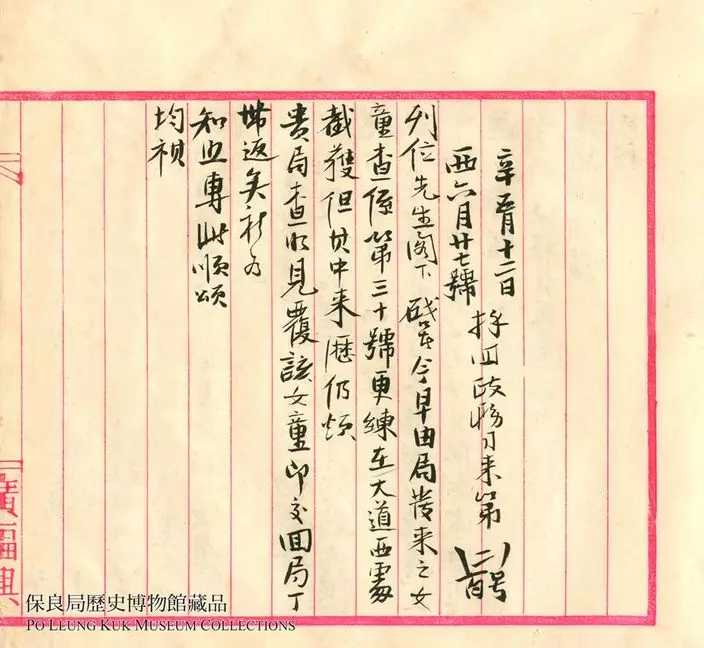 辛五月十二日
西六月廿七號
接回政務司來第
列位先生閣下 啟者今早由局發來之女
童查係第三十號更練在大道西處
截獲但其中來歷仍煩
貴局查明見覆該女童即交回局丁
帶返矣祈為
知 專此順頌
均祺
廣福興
保良局歷史博物館藏品
PO LEUNG KUK MUSEUM COLLECTIONS